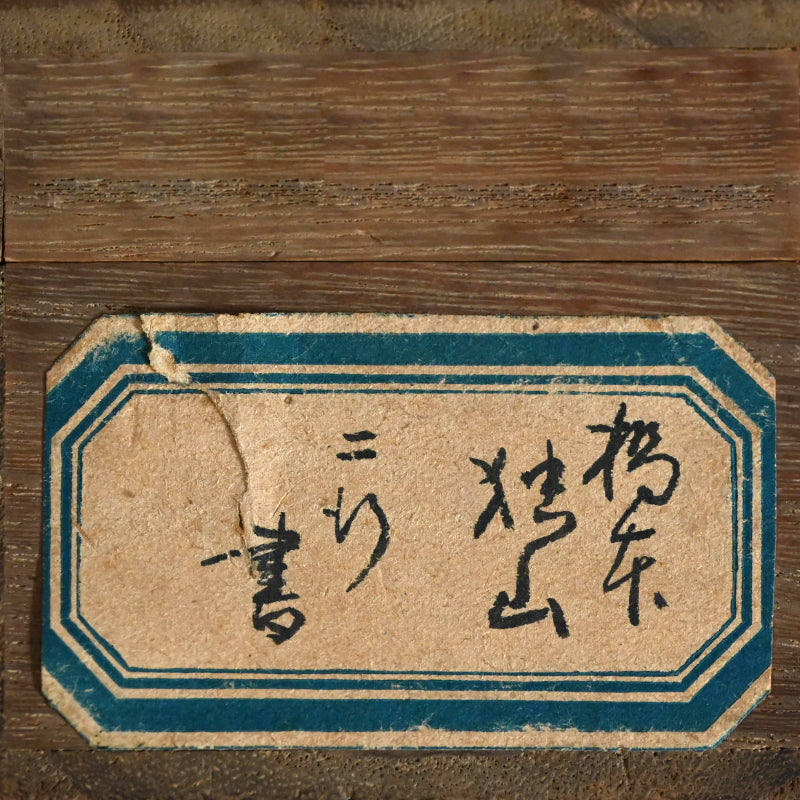 橋本
独山
二行
書